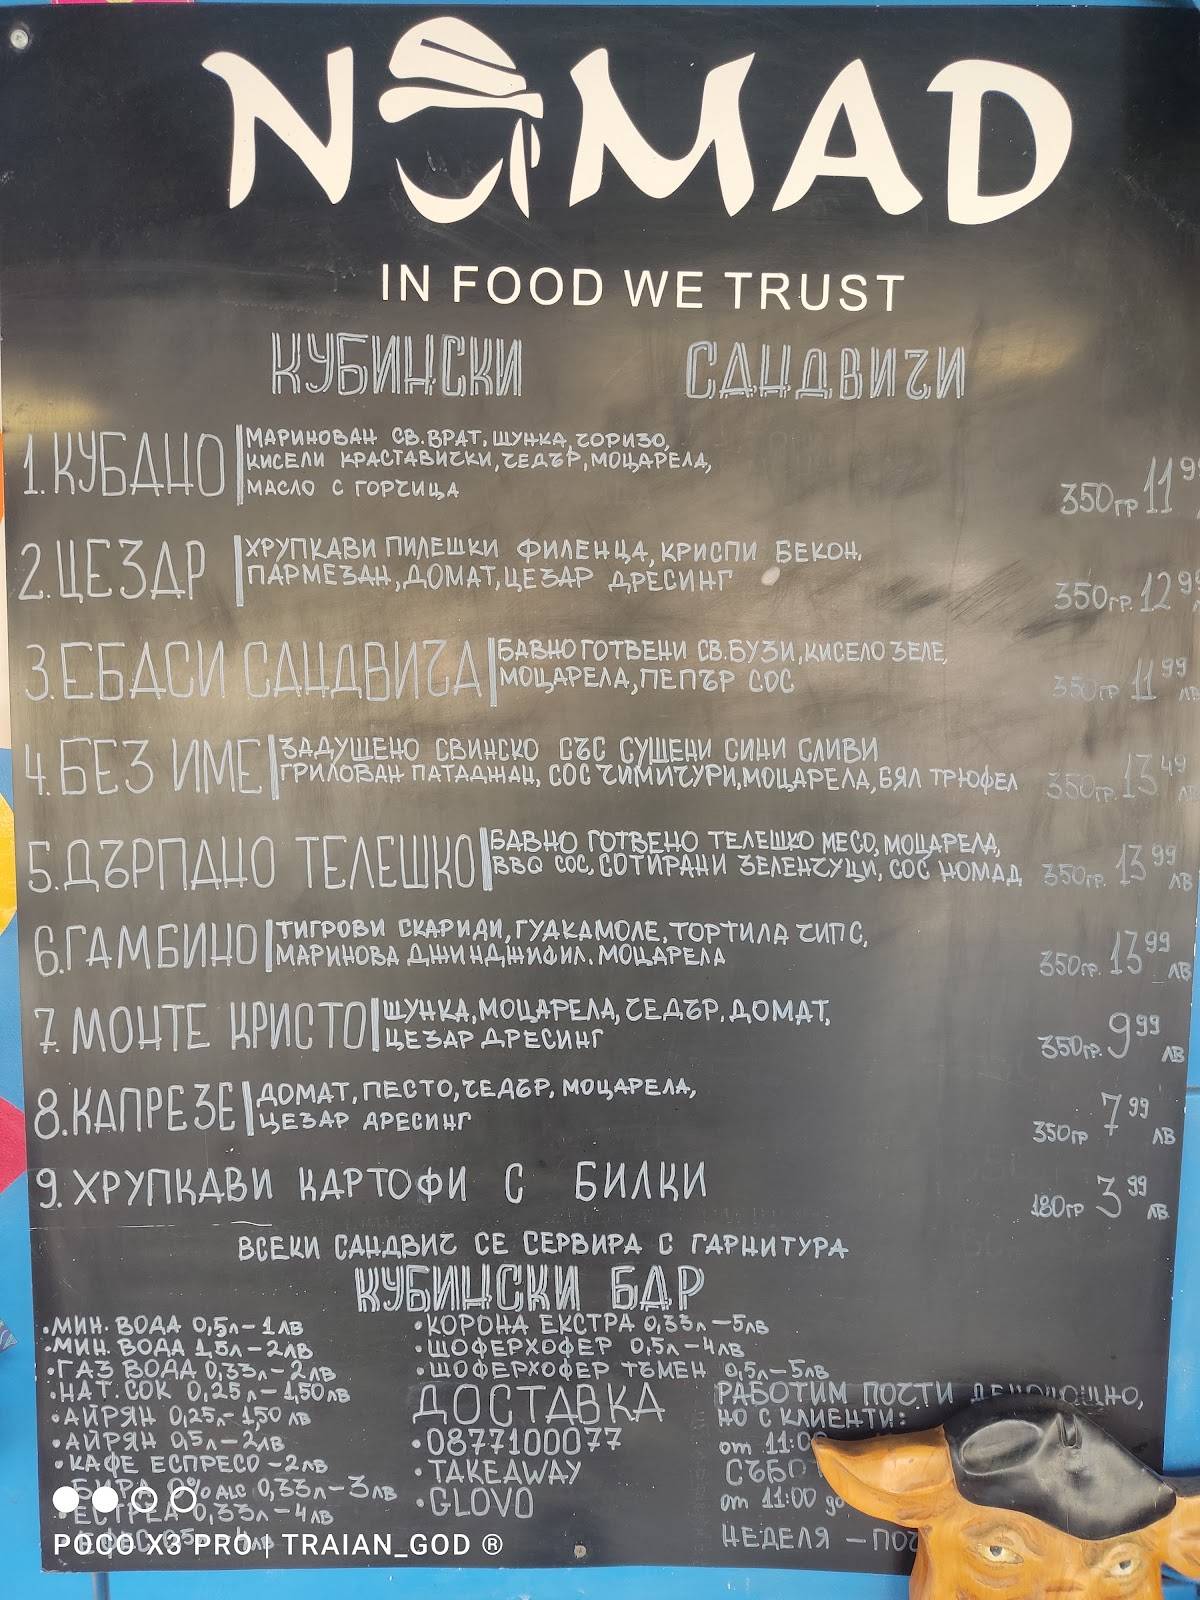 NOMAD
IN FOOD WE TRUST
КУБИНСКИ САНДВИЧИ
1. КУБАНО
МАРИНОВАН СВ. ВРАТ, ШУНКА, ЧОРИЗО,
КИСЕЛИ КРАСТАВИЧКИ, ЧЕДЪР, МОЦАРЕЛА,
МАСЛО С ГОРЧИЦА
350гр 11 9
2. ЦЕЗАР
ХРУПКАВИ ПИЛЕШКИ ФИЛЕНЦА, КРИСПИ БЕКОН,
ПАРМЕЗАН, ДОМАТ, ЦЕЗАР ДРЕСИНГ
350гр. 12 99
3. ЕБАСИ САНДВИЧА
БАВНО ГОТВЕНИ СВ. БУЗИ, КИСЕЛО ЗЕЛЕ,
МОЦАРЕЛА, ПЕПЪР СОС
350гр 11 99 ЛВ
4. БЕЗ ИМЕ
ЗАДУШЕНО СВИНСКО СЪС СУШЕНИ СИНИ СЛИВИ
ГРИЛОВАН ПАТАДЖАН, СОС ЧИМИЧУРИ, МОЦАРЕЛА, БЯЛ ТРЮФЕЛ
350гр. 13 49 Л
5. ДЪРПАНО ТЕЛЕШКО
БАВНО ГОТВЕНО ТЕЛЕШКО МЕСО, МОЦАРЕЛА,
BBQ СОС, СОТИРАНИ ЗЕЛЕНЧУЦИ, СОС НОМАД
350гр. 13 99 ЛВ
6. ГАМБИНО
ТИГРОВИ СКАРИДИ, ГУАКАМОЛЕ, ТОРТИЛА ЧИПС,
МАРИНОВА ДЖИНДЖИФИЛ. МОЦАРЕЛА
350гр. 13 99 ЛВ
7. МОНТЕ КРИСТО
ШУНКА, МОЦАРЕЛА, ЧЕДЪР, ДОМАТ,
ЦЕЗАР ДРЕСИНГ
350гр. 9 99 ЛВ
8. КАПРЕЗЕ
ДОМАТ, ПЕСТО, ЧЕДЪР, МОЦАРЕЛА,
ЦЕЗАР ДРЕСИНГ
350гр 7 99 ЛВ
9. ХРУПКАВИ КАРТОФИ С БИЛКИ
180гр 3 99 ЛВ.
ВСЕКИ САНДВИЧ СЕ СЕРВИРА С ГАРНИТУРА
КУБИНСКИ БАР
•МИН. ВОДА 0,5л-1ЛВ
•МИН. ВОДА 1,5л-2ЛВ
•ГАЗ ВОДА 0,33л-2ЛВ
•НАТ. СОК 0,25л-1,50ЛВ
•АЙРЯН 0,25л-1,50ЛВ
•АЙРЯН 0,5л-2ЛВ
•КАФЕ ЕСПРЕСО-2ЛВ
•БИРА 0% ALC 0,33л-3ЛВ
•ЕСТРЕЛА 0,33л-4ЛВ
•КОРОНА ЕКСТРА 0,33л-5ЛВ
•ШОФЕРХОФЕР 0,5л-4ЛВ
•ШОФЕРХОФЕР ТЪМЕН 0,5л-5ЛВ
ДОСТАВКА
•0877100077
•TAKEAWAY
•GLOVO
РАБОТИМ ПОЧТИ ДЕНОНОЩНО,
НО С КЛИЕНТИ:
от 11:0
СЪБО
от 11:00 до
НЕДЕЛЯ - ПОЧ
POCO X3 PRO | TRAIAN_GOD ®